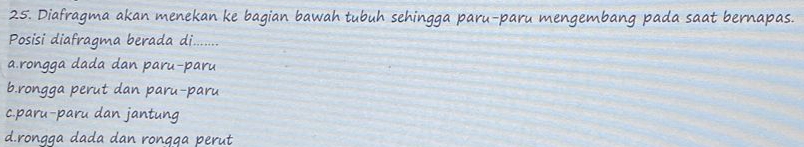 25. Diafragma akan menekan ke bagian bawah tubuh sehingga paru-paru mengembang pada saat bernapas.
Posisi diafragma berada di.......
a.rongga dada dan paru-paru
b.rongga perut dan paru-paru
c.paru-paru dan jantung
d.rongga dada dan rongga perut